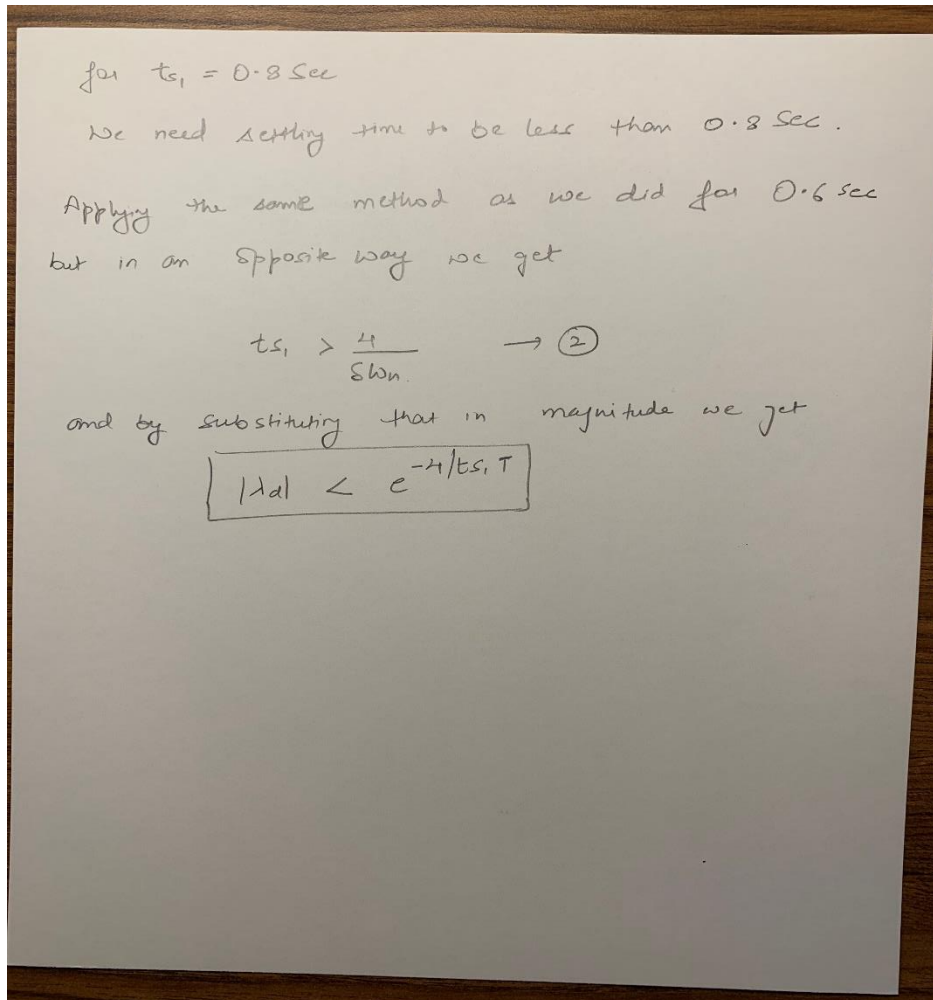 for ts₁ = 0.8 Sec
We need settling time to be less than 0.8 Sec.
Applying the same method as we did for 0.6 sec
but in an opposite way we get
ts₁ > 4/δωn. → ②
and by substituting that in magnitude we get
|λd| < e^-4/ts₁ T